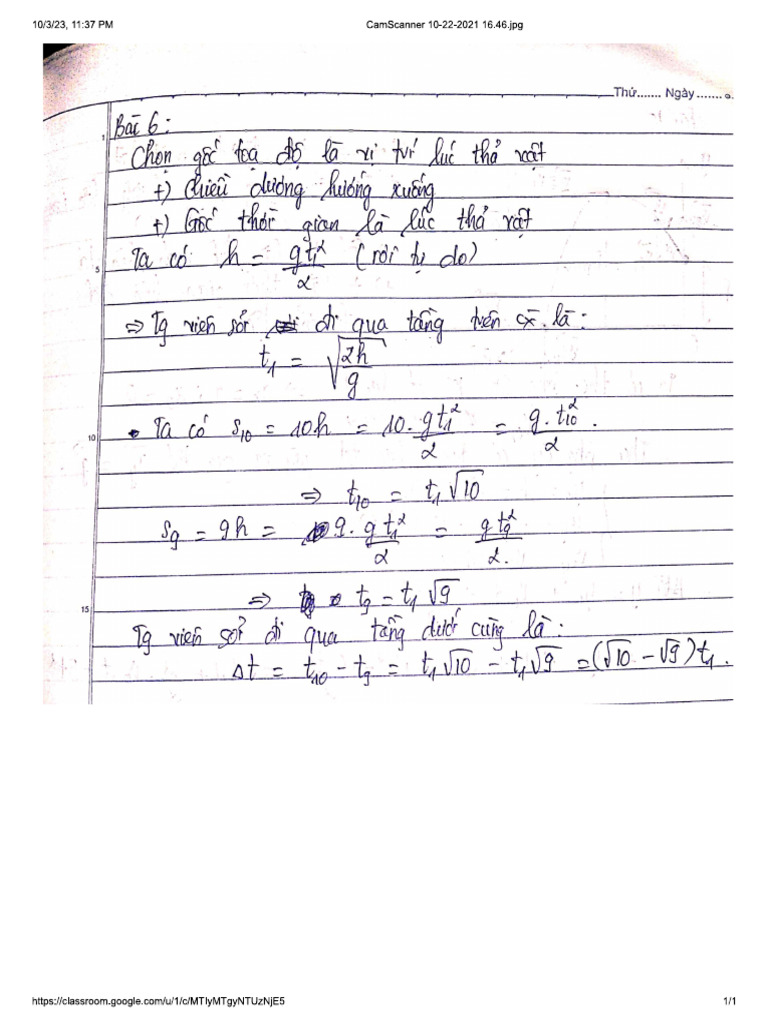 10/3/23, 11:37 PM CamScanner 10-22-2021 16.46.jpg
Thứ....... Ngày .......
Bài 6:
1
Chọn gốc toạ độ là vị trí lúc thả vật
+) Chiều dương hướng xuống
+) Gốc thời gian là lúc thả vật
Ta có h = gt₁²/2 (rơi tự do)
5
=> Tg viên sỏi đi qua tầng trên cx. là:
t₁ = √(2h/g)
• Ta có s₁₀ = 10h = 10. gt₁²/2 = g.t₁₀²/2 .
10
=> t₁₀ = t₁√10
s₉ = 9h = 9. gt₁²/2 = gt₉²/2.
=> t₉ = t₁√9
15
Tg viên sỏi đi qua tầng dưới cùng là:
Δt = t₁₀ - t₉ = t₁√10 - t₁√9 = (√10 - √9)t₁.
https://classroom.google.com/u/1/c/MTIyMTgyNTUzNjE5 1/1